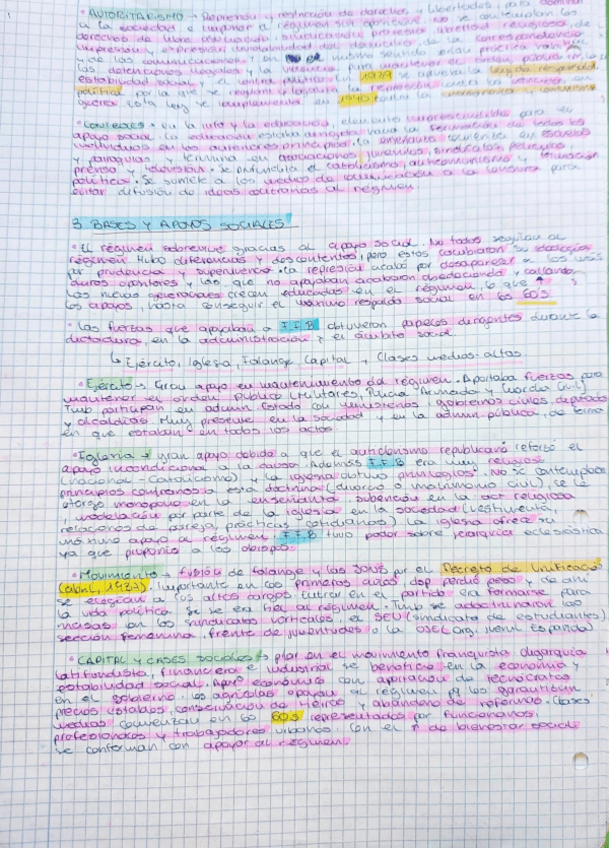 • AUTORITARISMO → Represión y restricción de derechos y libertades, para dominar
a la sociedad e imponer el régimen sin oposición. No se contemplan los
derechos de libre
impresión y expresión, inviolabilidad del domicilio, de la correspondencia
y de las comunicaciones
las detenciones ilegales y la
estabilidad social y el control político. En 1939 se aprueba la ley de responsab.
políticas por la que se
guerra. Esta ley se complementa en 1940 contra la masonería y comunismo
• Controles: en la vida y la educación, elementos imprescindibles para su
apoyo social. La educación estaba dirigida hacia la
individuos en los anteriores principios. La enseñanza comienza en escuelas
y parroquias y termina en asociaciones juveniles, sindicatos, películas,
prensa y televisión. Se profundiza el catolicismo, anticomunismo y
política. Se somete a los medios de comunicación a la censura para
evitar difusión de ideas contrarias al régimen.
3 BASES Y APOYOS SOCIALES
• El régimen sobrevive gracias al apoyo social. No todos seguían al
régimen. Hubo diferencias y descontentos, pero estos cambiaron su ideología
por prudencia y supervivencia. La represión acabó por desaparecer a los más
duros opositores y los que no apoyaban acabaron obedeciendo y callando.
Las nuevas generaciones crecen educadas en el régimen, lo que ↑
los apoyos, hasta conseguir el máximo respaldo social en los 60's
• Las fuerzas que apoyaban a F.F.B obtuvieron papeles dirigentes durante la
dictadura, en la administración y el ámbito social
↳ Ejército, Iglesia, Falange, Capital y Clases medias-altas
• Ejército → Gran apoyo en mantenimiento del régimen. Aportaba fuerzas para
mantener el orden público (Militares, Policía Armada y Guardia Civil)
Tmb participan en admin. Estado con ministerios, gobiernos civiles, diputados
y alcaldías. Muy presente en la sociedad y en la admin. pública, de forma
en que estaban en todos los actos.
• Iglesia → gran apoyo debido a que el anticlerismo republicano reforzó el
apoyo incondicional a la causa. Además F.F.B era muy religioso
(nacional-Catolicismo) y la iglesia obtuvo privilegios. No se contemplaba
principios contrarios a esta doctrina (divorcio y matrimonio civil), se le
otorgó monopolio en enseñanza, subvención en la act. religiosa
y modelación por parte de la iglesia en la sociedad (vestimenta,
relaciones de pareja, prácticas cotidianas). La iglesia ofrece su
máximo apoyo al régimen. F.F.B tuvo poder sobre jerarquía eclesiástica
ya que proponía a los obispos.
• Movimiento → fusión de falange y las JONS por el Decreto de Unificació
(abril, 1937). Importante en los primeros años, dsp perdió peso y de ahí
se elegían a los altos cargos. Entrar en el partido era formarse para
la vida política si se era fiel al régimen. Tmb se adoctrinaron las
masas en los sindicatos verticales, el SEU (sindicato de estudiantes)
sección femenina, frente de juventudes o la OJE (Org. juvenil Española)
• CAPITAL y CLASES SOCIALES → pilar en el movimiento franquista. Oligarquía
latifundista, financiera e industrial se benefició en la economía y
estabilidad social. Apoyo económico con aportación de tecnócratas
en el gobierno. Los agrícolas apoyan al régimen pq los garantizan
precios estables, conservación de tierras y abandono de reformas. Clases
medias comienzan en 60 60s representados por funcionarios,
profesionales y trabajadores urbanos. Con el ↑ de bienestar social
se conforman con apoyar al régimen.